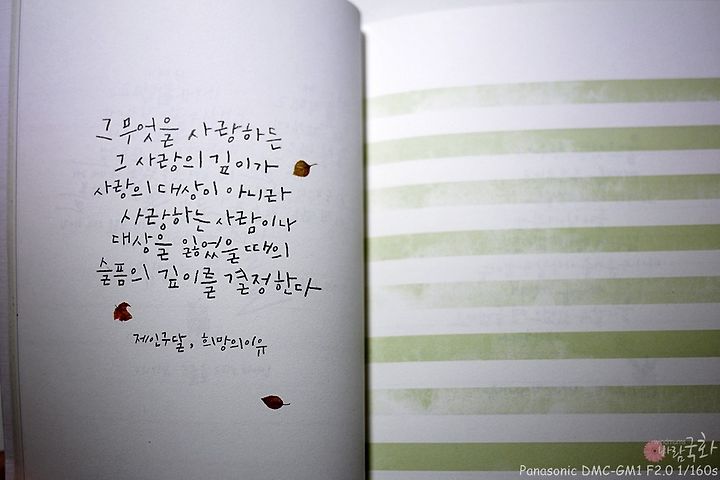 그 무엇을 사랑하든
그 사랑의 깊이가
사랑의 대상이 아니라
사랑하는 사람이나
대상을 잃었을 때의
슬픔의 깊이를 결정한다
제인구달, 희망의이유
바람국화
Panasonic DMC-GM1 F2.0 1/160s